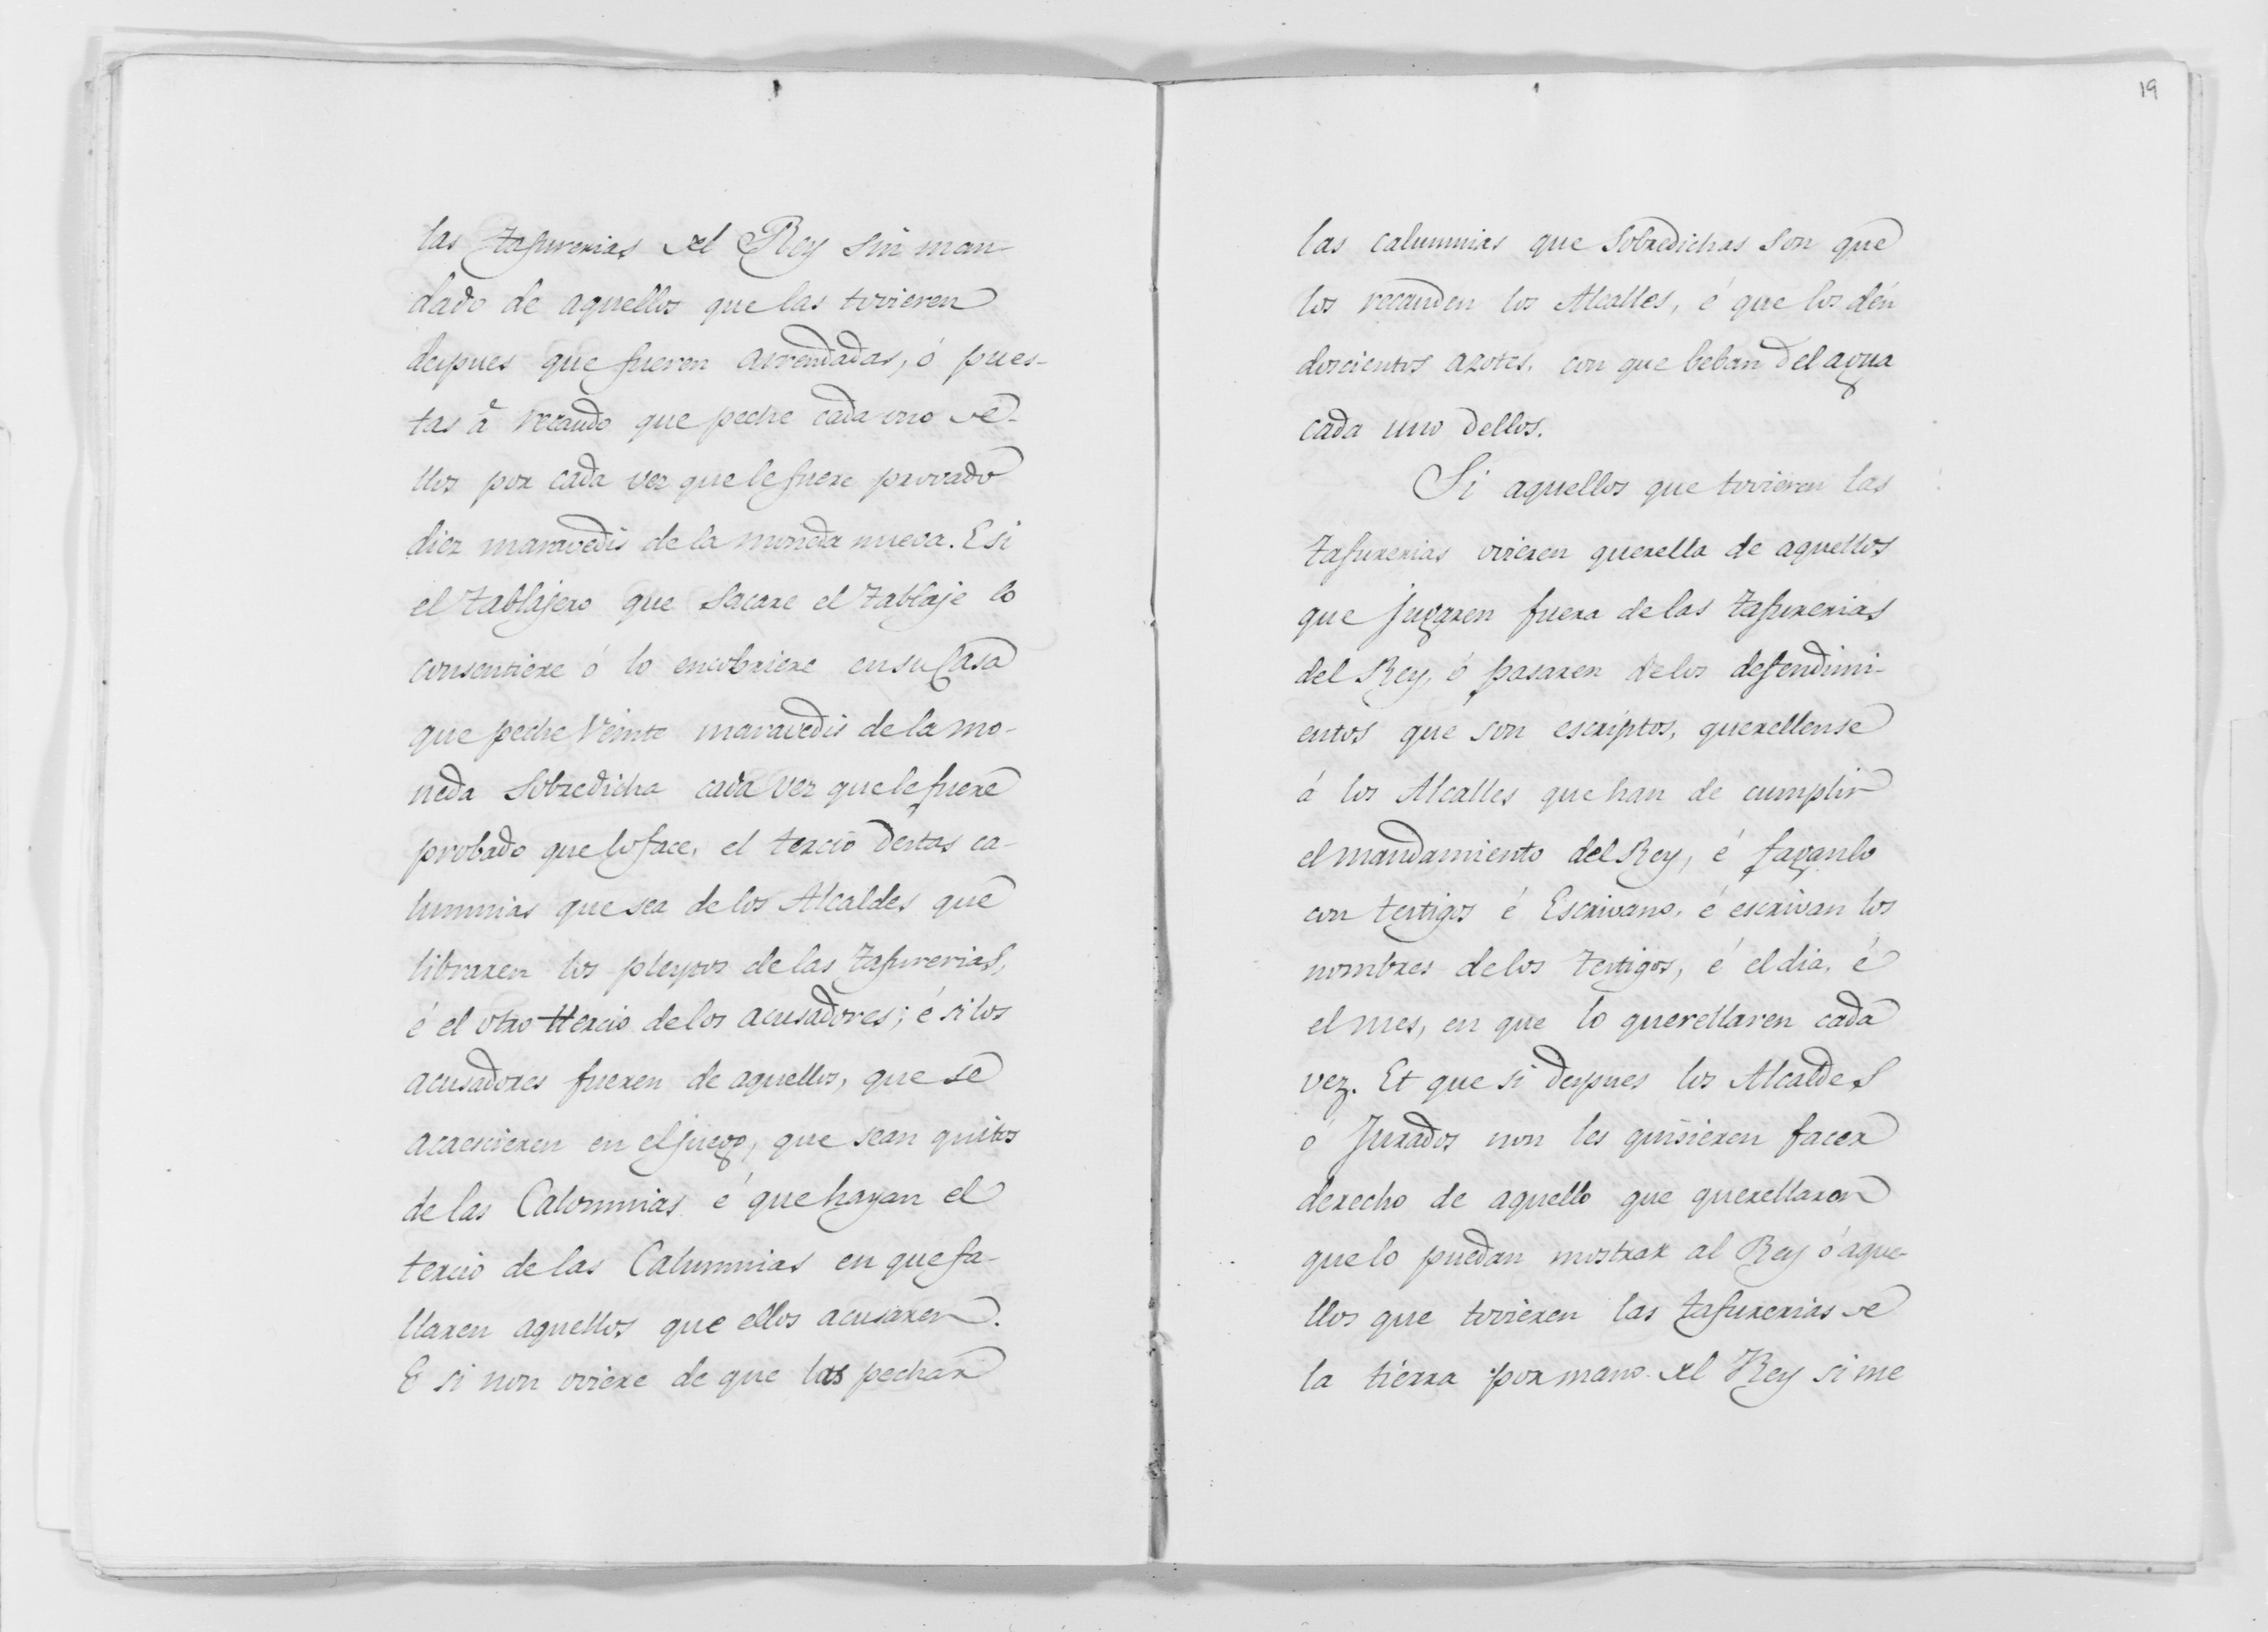 las tafurerias del Rey sin man-
dado de aquellos que las tovieren
despues que fueren arrendadas, ó pues-
tas á recaudo que peche cada uno de-
llos por cada vez que le fuere provado
diez maravedis de la moneda nueva. E si
el tablajero que sacare el tablaje lo
consentiere ó lo encobriere en su Casa
que peche Veinte maravedis de la mo-
neda Sobredicha cada vez que le fuere
probado que lo face, el tercio destas ca-
lumnias que sea de los Alcaldes que
libraren los pleytos de las tafurerias,
é el otro ttercio de los acusadores; é si los
acusadores fueren de aquellos, que se
acaescieren en el juego, que sean quitos
de las Calomnias é que hayan el
tercio de las Calumnias en que fa-
llaren aquellos que ellos acusaren.
E si non oviere de que las pechar
19
las calumnias que Sobredichas son que
los recauden los Alcalles, é que los dén
doscientos azotes, con que beban del agua
cada uno dellos.
Si aquellos que tovieren las
tafurerias ovieren querella de aquellos
que jugaren fuera de las tafurerias
del Rey, ó pasaren de los defendimi-
entos que son escriptos, querellense
á los Alcalles que han de cumplir
el mandamiento del Rey, é faganlo
con testigos é Escrivano, é escrivan los
nombres de los testigos, é el dia, é
el mes, en que lo querellaren cada
vez. Et que si despues los Alcaldes
ó Jurados non les quisieren facer
derecho de aquello que querellaron
que lo puedan mostrar al Rey ó aque-
llos que tovieren las tafurerias de
la tierra por mano del Rey si me